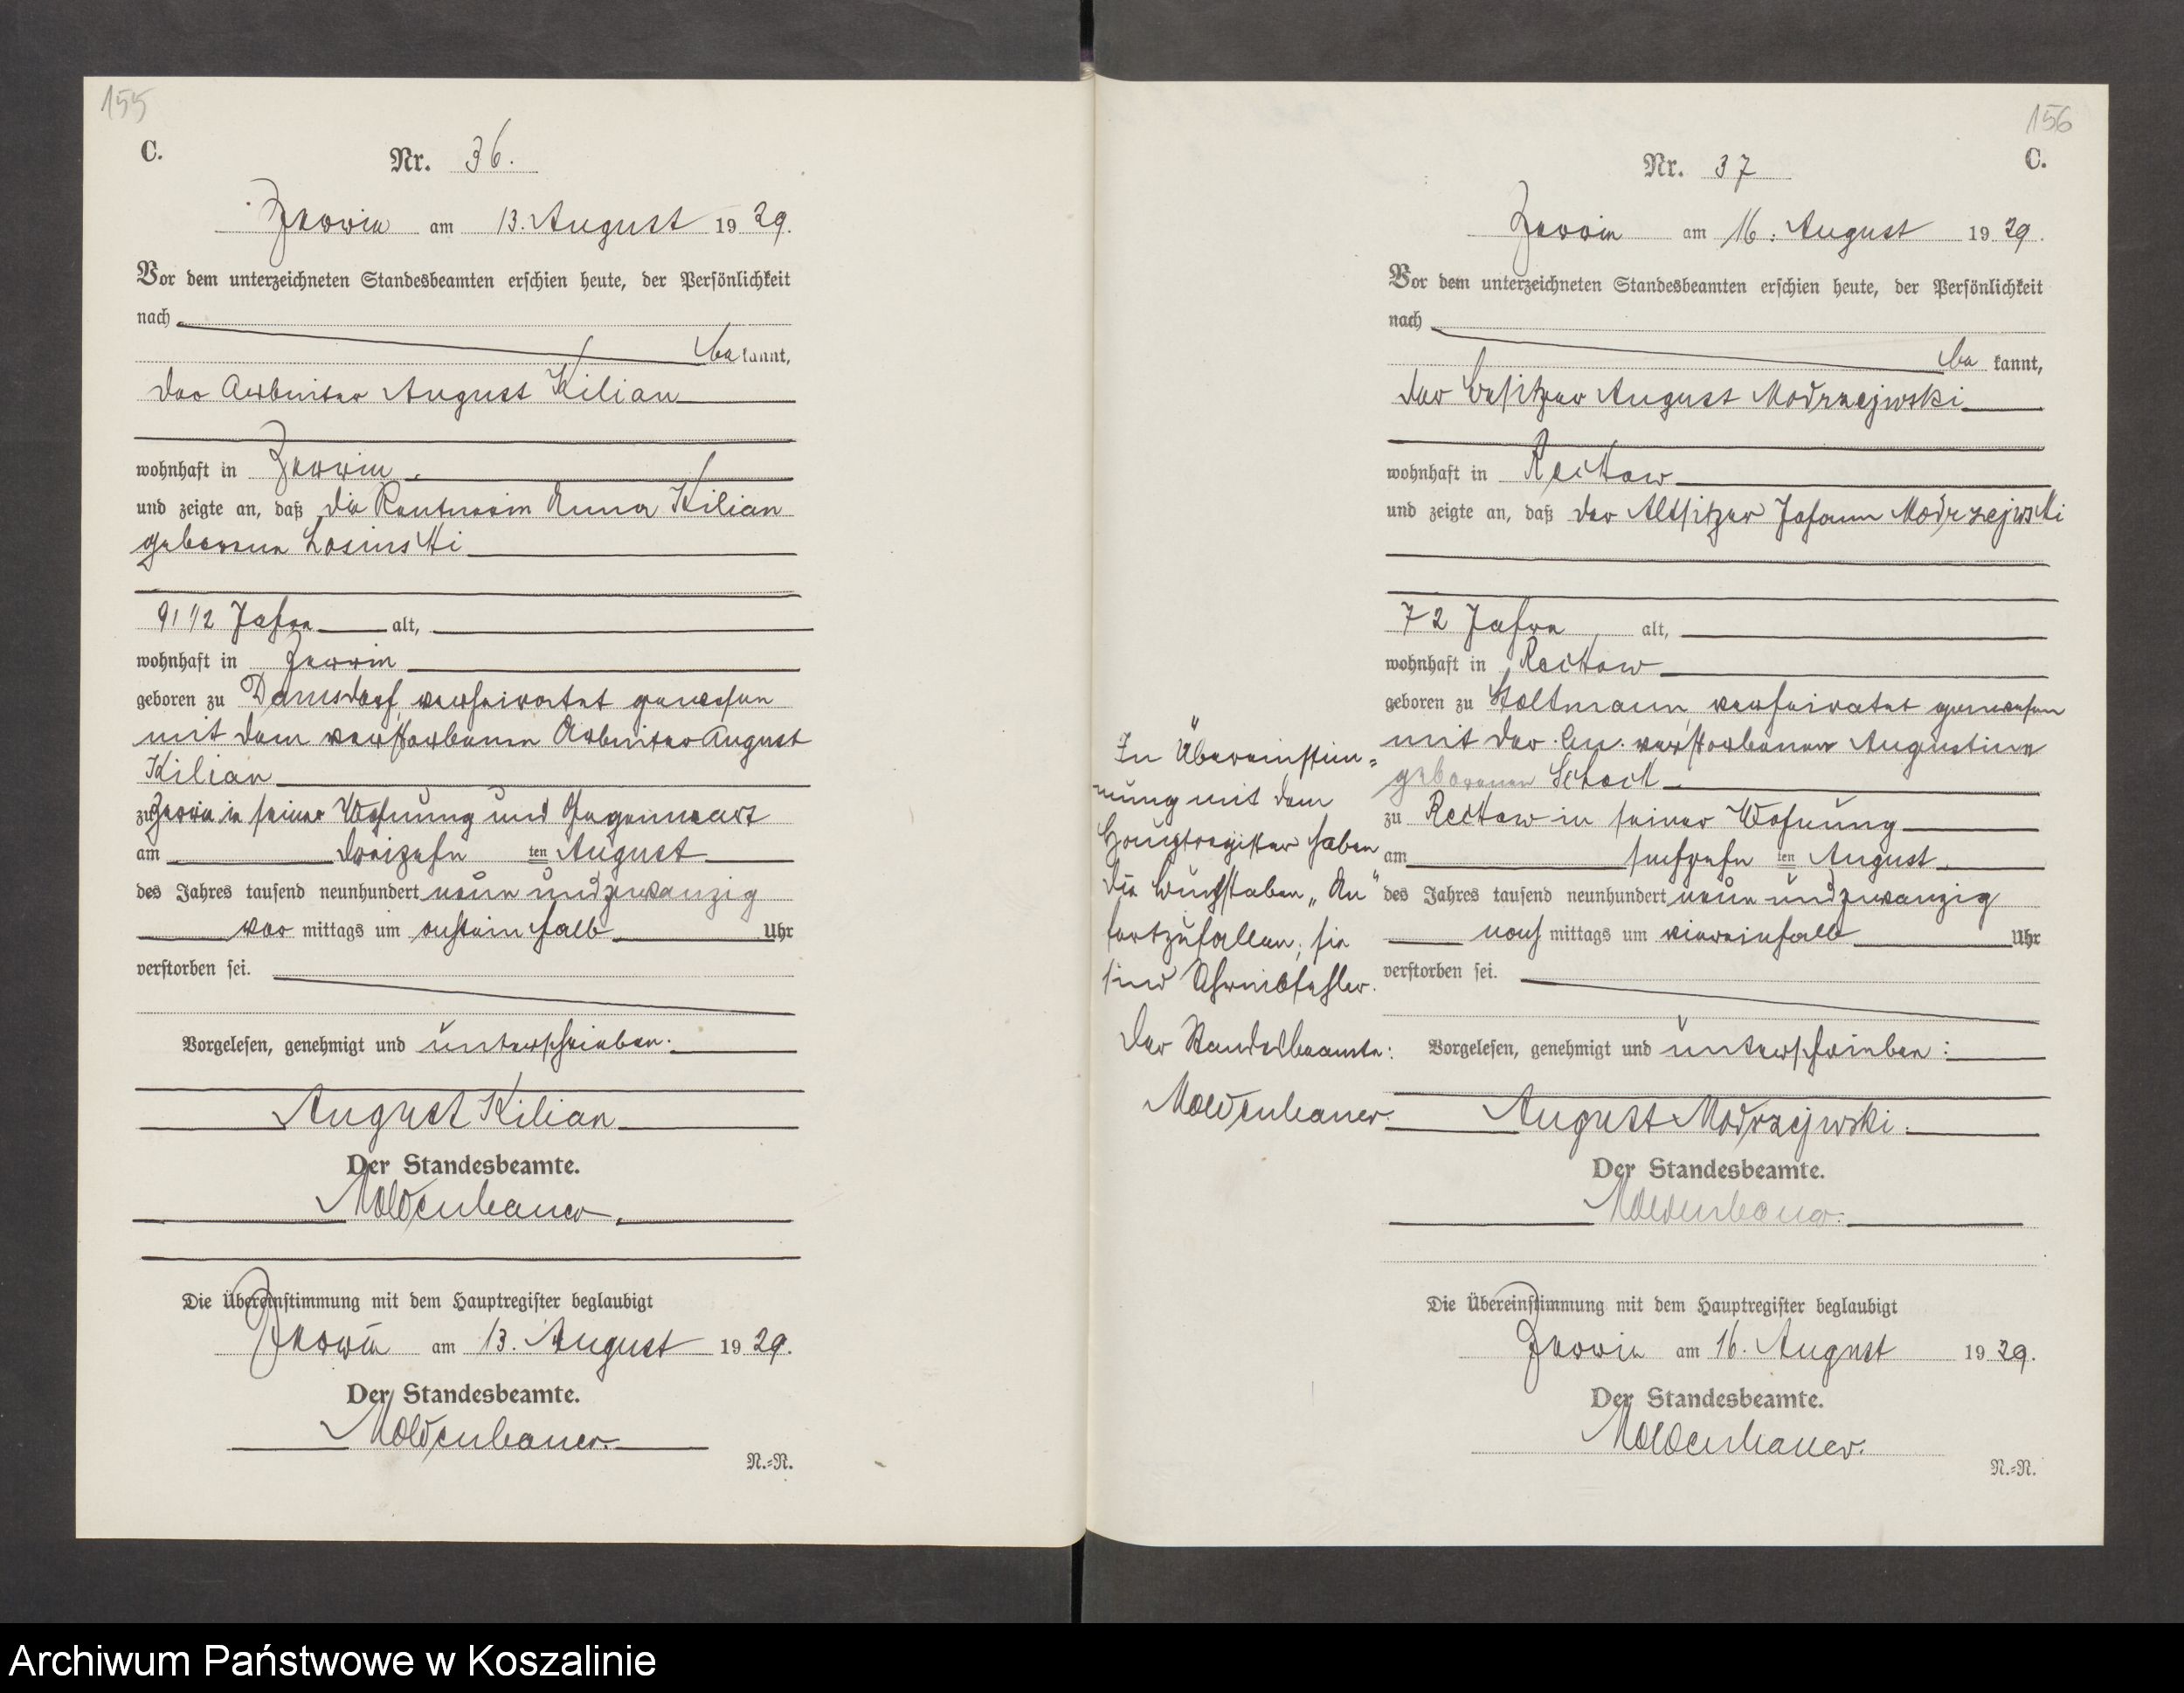 155
C.
Nr. 36.
Zerrin am 13. August 1929.
Vor dem unterzeichneten Standesbeamten erschien heute, der Persönlichkeit
nach
be kannt,
der Arbeiter August Kilian
wohnhaft in Zerrin
und zeigte an, daß die Rentnerin Anna Kilian
geborene Losinski
91 1/2 Jahre alt,
wohnhaft in Zerrin
geboren zu Damsdorf, verheiratet gewesen
mit dem verstorbenen Arbeiter August
Kilian
zu Zerrin in seiner Wohnung und Gegenwart
am dreizehn ten August
des Jahres tausend neunhundert neun und zwanzig
vor mittags um achteinhalb Uhr
verstorben sei.
Vorgelesen, genehmigt und unterschrieben.
August Kilian
Der Standesbeamte.
Moldenhauer.
Die Übereinstimmung mit dem Hauptregister beglaubigt
Zerrin am 13. August 1929.
Der Standesbeamte.
Moldenhauer.
N.=N.
156
C.
Nr. 37
Zerrin am 16. August 1929.
Vor dem unterzeichneten Standesbeamten erschien heute, der Persönlichkeit
nach
be kannt,
der Besitzer August Modrzejwski
wohnhaft in Reckow
und zeigte an, daß der Altsitzer Johann Modrzejwski
72 Jahre alt,
wohnhaft in Reckow
geboren zu Stoltmann, verheiratet gewesen
mit der An. verstorbenen Augustine
geborenen Schock
zu Reckow in seiner Wohnung
am sechzehn ten August
des Jahres tausend neunhundert neun und zwanzig
nach mittags um viereinhalb Uhr
verstorben sei.
Vorgelesen, genehmigt und unterschrieben:
August Modrzejwski.
Der Standesbeamte.
Moldenhauer.
Die Übereinstimmung mit dem Hauptregister beglaubigt
Zerrin am 16. August 1929.
Der Standesbeamte.
Moldenhauer.
N.=N.
In Übereinstim=
mung mit dem
Hauptregister haben
die Buchstaben „An"
fortzufallen; sie
sind Schreibfehler.
Der Standesbeamte:
Moldenhauer.
Archiwum Państwowe w Koszalinie